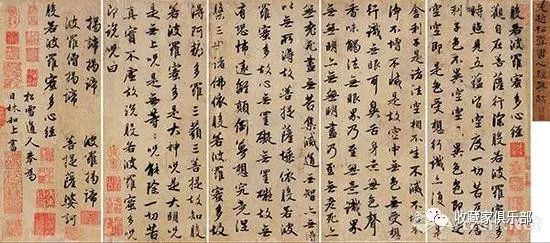 般若波羅蜜多心經
觀自在菩薩行深般若波羅蜜多
時照見五蘊皆空度一切苦厄
舍利子色不異空空不異色色即是
空空即是色受想行識亦復如是
舍利子是諸法空相不生不滅不垢
不淨不增不減是故空中無色無受想
行識無眼耳鼻舌身意無色聲
香味觸法無眼界乃至無意識界
無無明亦無無明盡乃至無老死亦
無老死盡無苦集滅道無智亦無得
以無所得故菩提薩埵依般若波
羅蜜多故心無罣礙無罣礙故無
有恐怖遠離顛倒夢想究竟涅
槃三世諸佛依般若波羅蜜多故
得阿耨多羅三藐三菩提故知般
若波羅蜜多是大神咒是大明咒
是無上咒是無等等咒能除一切苦
真實不虛故說般若波羅蜜多咒
即說咒曰
揭諦揭諦 波羅揭諦
波羅僧揭諦 菩提薩婆訶
般若波羅蜜多心經
松雪道人奉為
日林和上書
收藏家俱乐部